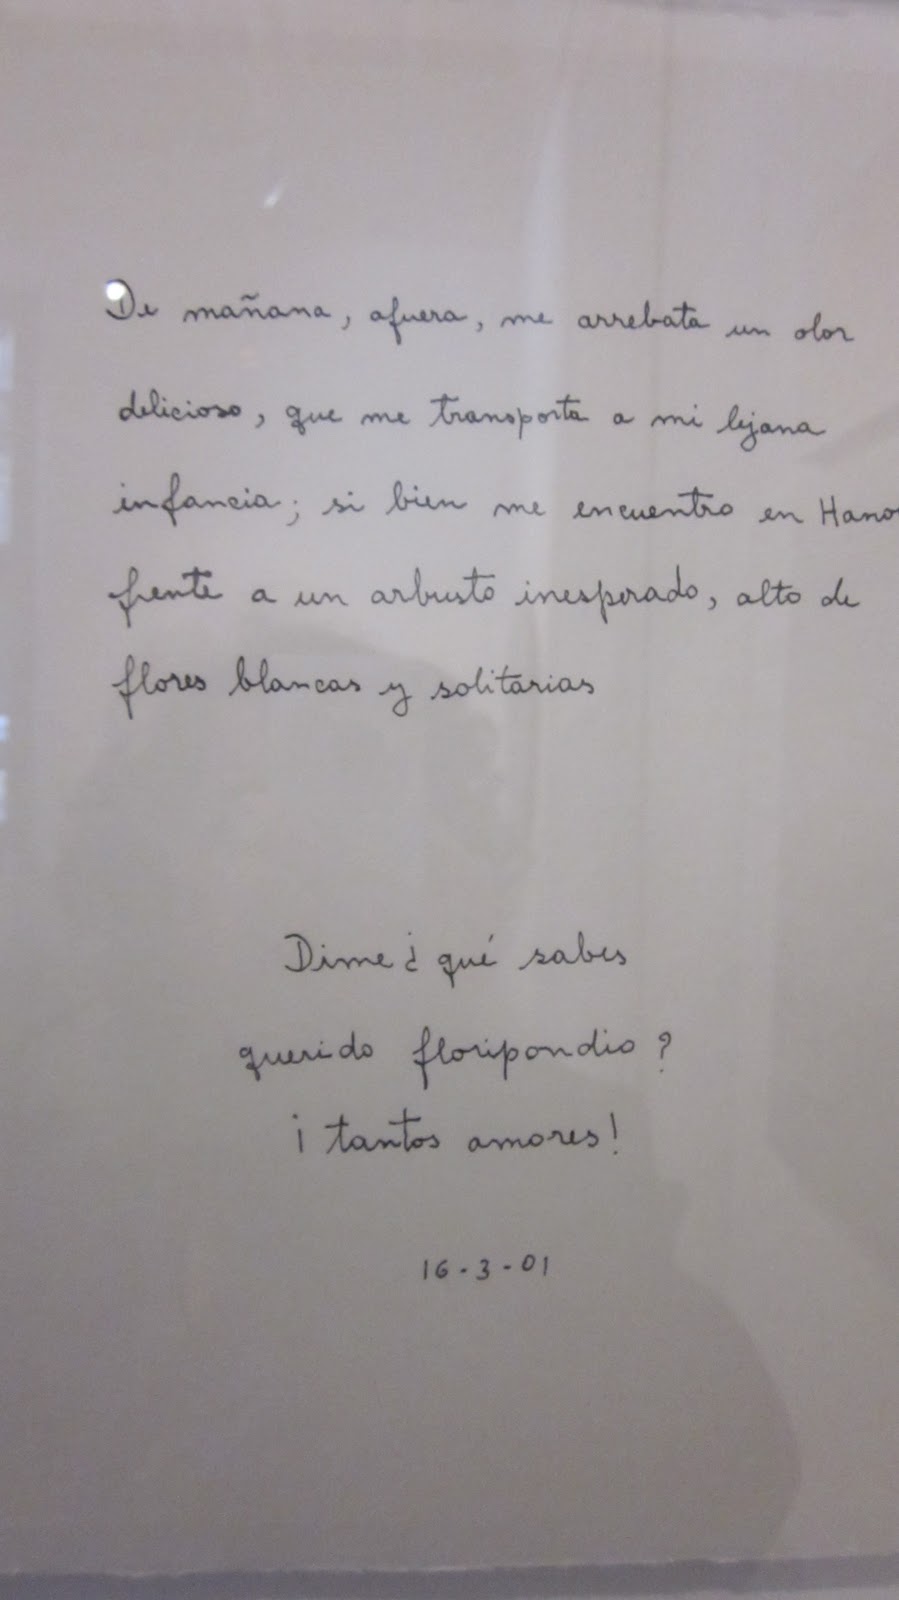 De mañana, afuera, me arrebata un olor
delicioso, que me transporta a mi lejana
infancia; si bien me encuentro en Hano
frente a un arbusto inesperado, alto de
flores blancas y solitarias
Dime ¿ qué sabes
querido floripondio ?
¡ tantos amores !
16 - 3 - 01